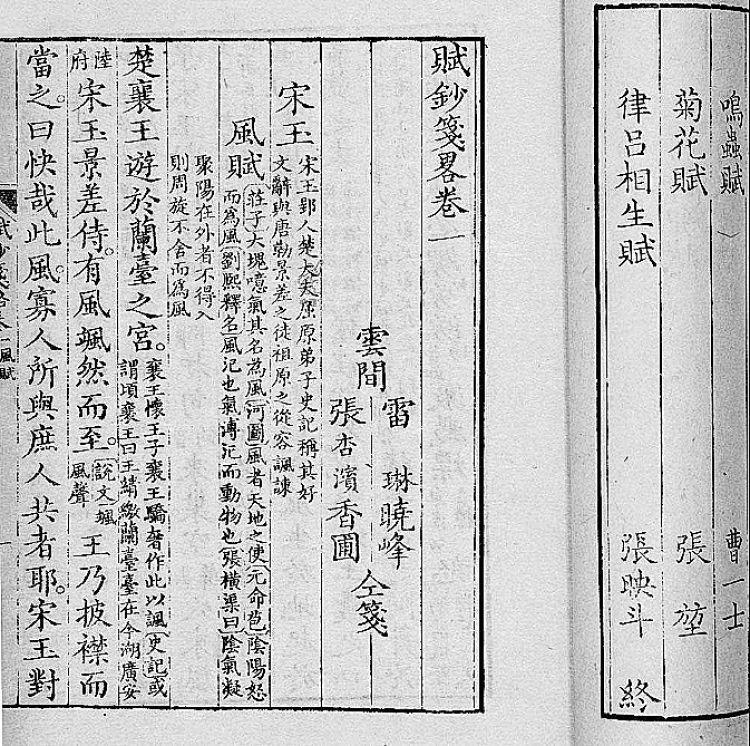 鳴蟲賦 曹一士
菊花賦 張堃
律呂相生賦 張映斗 終
賦鈔箋畧卷一
雲間
雷琳曉峰
張杏濱香圃
仝箋
宋玉
宋玉郢人楚大夫屈原弟子史記稱其好
文辭與唐勒景差之徒祖原之從容諷諫
風賦
莊子大塊噫氣其名為風河圖風者天地之使元命苞陰陽怒
而為風劉熙釋名風氾也氣溥氾而動物也張橫渠曰陰氣凝
聚陽在外者不得入
則周旋不舍而為風
楚襄王遊於蘭臺之宮。
襄王懷王子襄王驕奢作此以諷史記或
謂頃襄王曰王綪繳蘭臺臺在今湖廣安
陸
府
宋玉景差侍。有風颯然而至。
說文颯
風聲
王乃披襟而
當之。曰快哉此風。寡人所與庶人共者耶。宋玉對